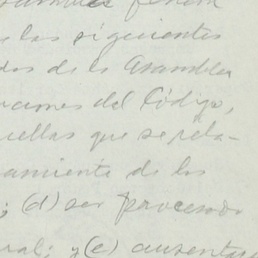 las siguientes
dos de la Asamblea
ciones del Código,
ellas que se rela-
amiento de los
; (d) ser procesado
ral; y (e) ausentarse